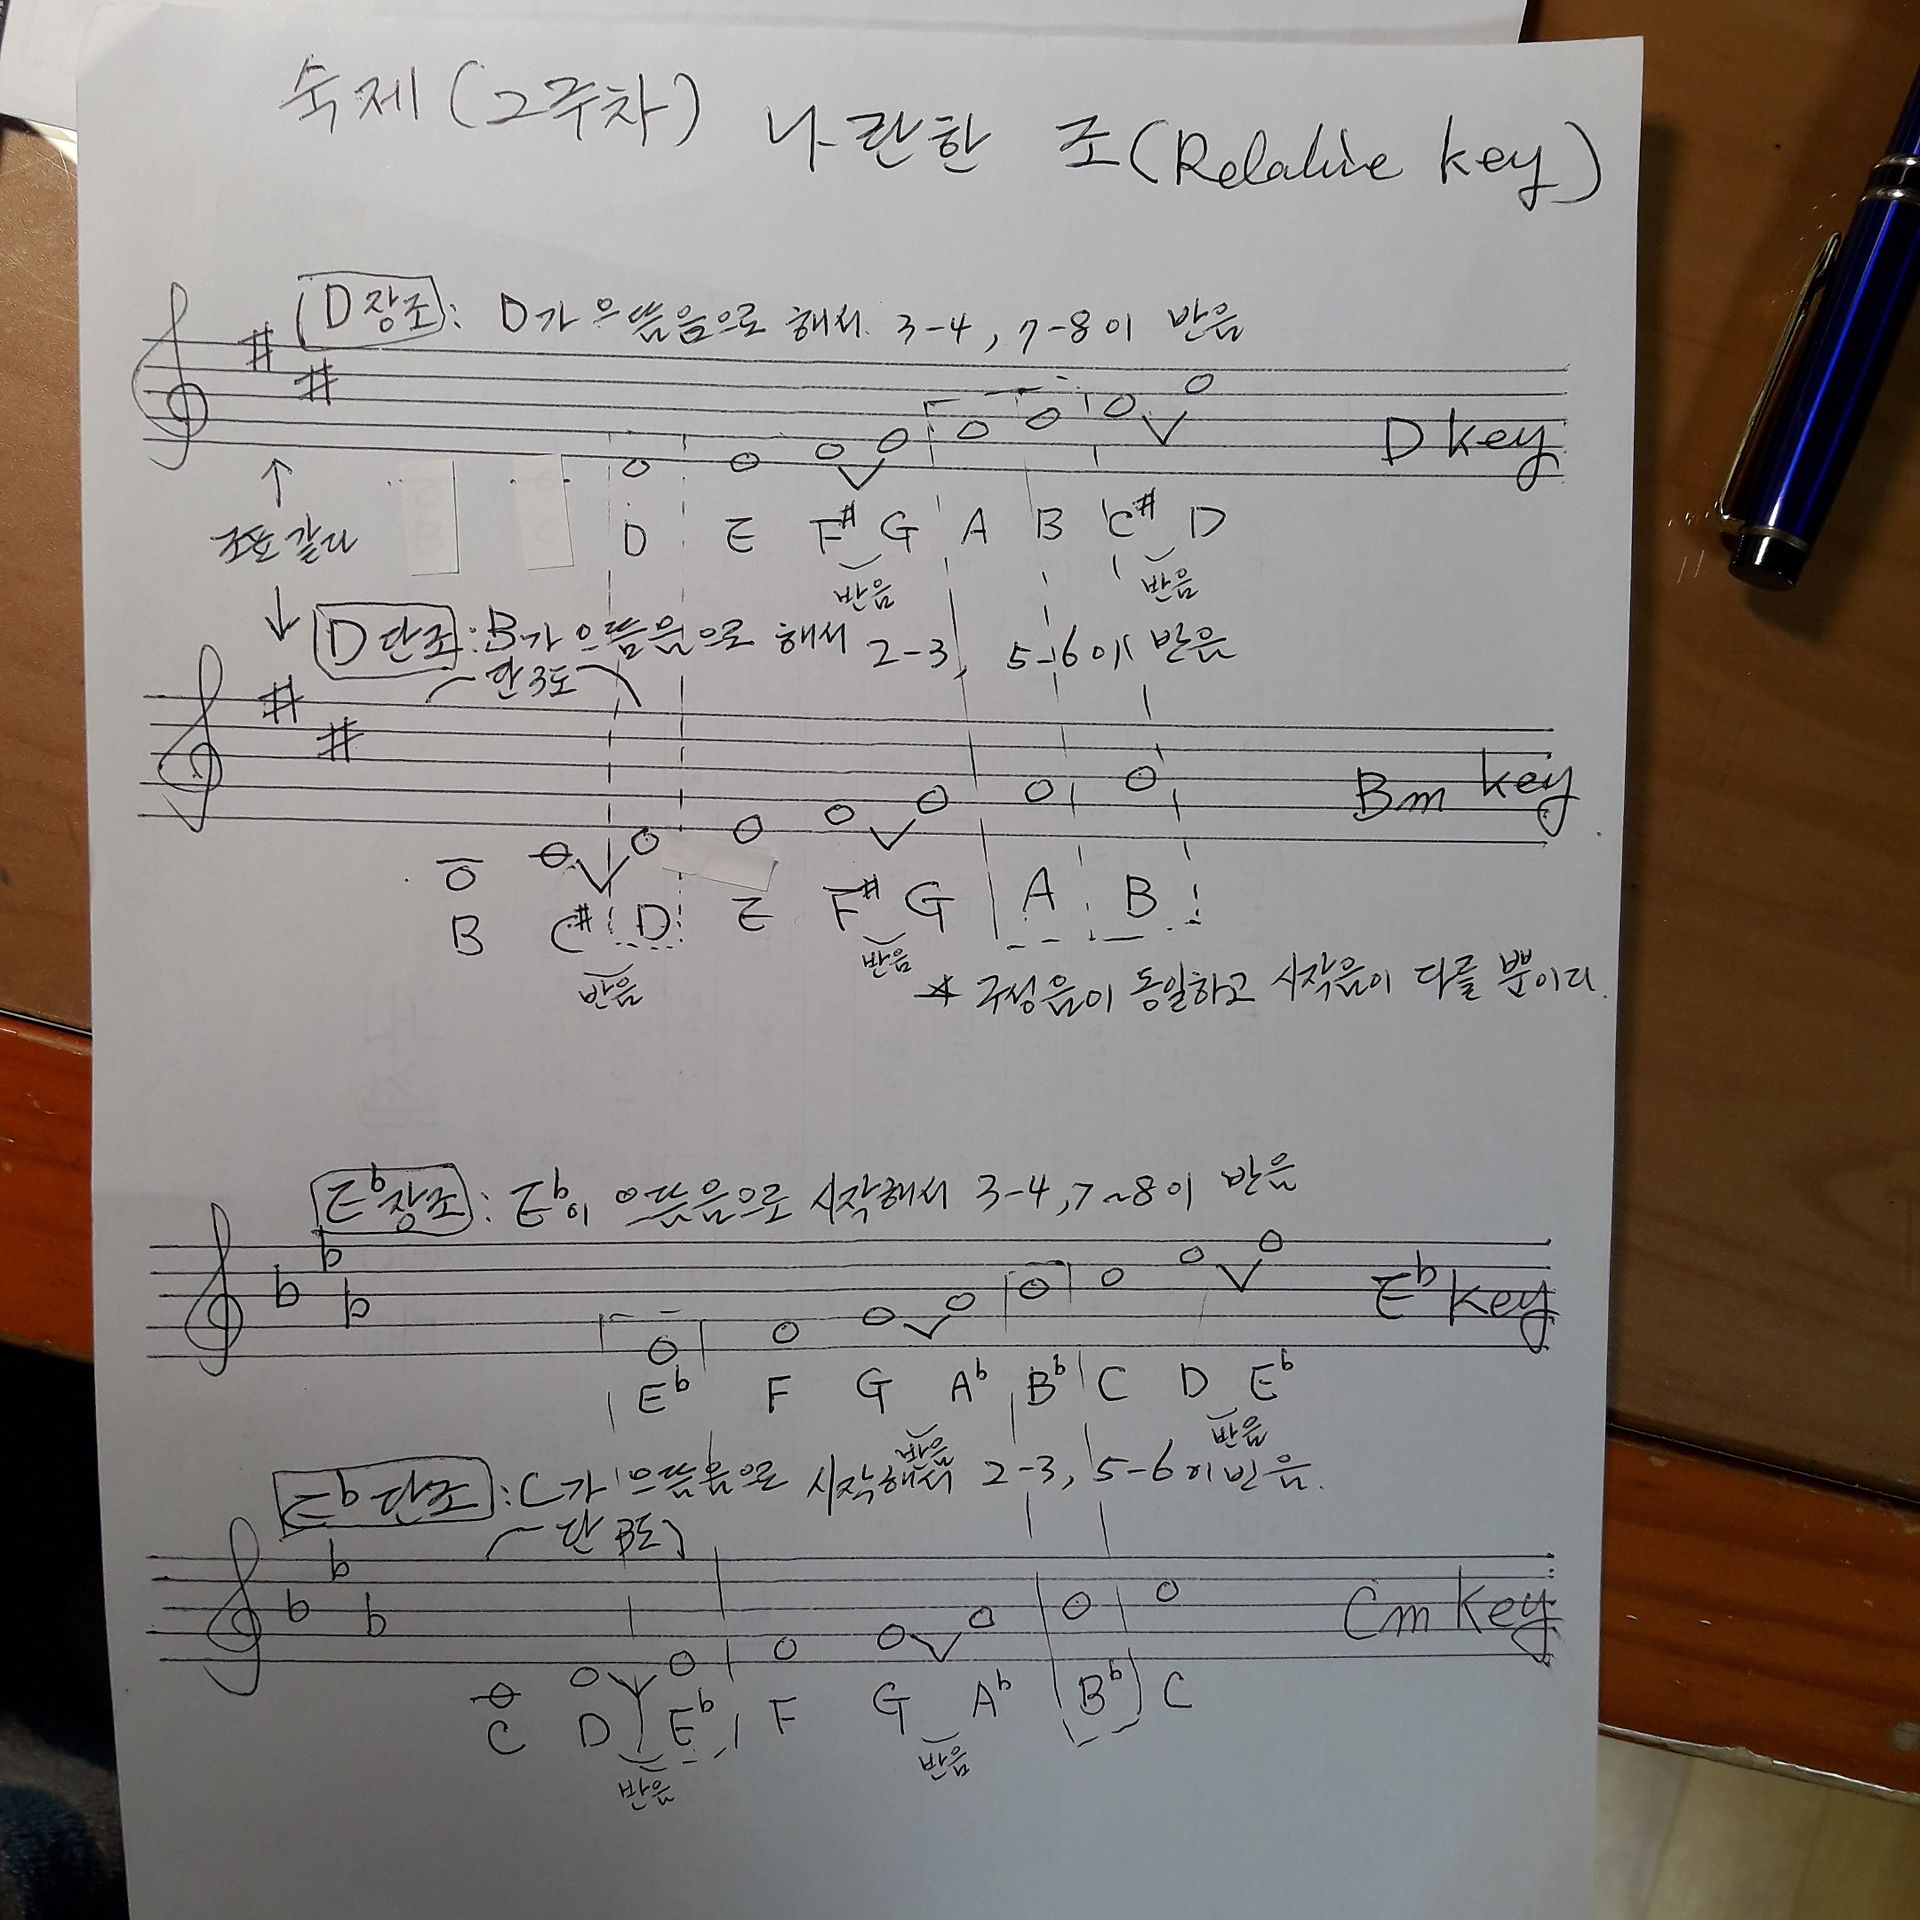 숙제(2주차) 나란한 조(Relative key)
D장조: D가 으뜸음으로 해서. 3-4, 7-8이 반음
D key
D E F# G A B C# D
반음 반음
조표 같다
D단조: B가 으뜸음으로 해서 2-3, 5-6이 반음
단3도
Bm key
B C# D E F# G A B
반음 반음
* 구성음이 동일하고 시작음이 다를 뿐이다.
E♭장조: E♭이 으뜸음으로 시작해서 3-4, 7~8이 반음
E♭ key
E♭ F G A♭ B♭ C D E♭
반음 반음
E♭단조: C가 으뜸음으로 시작해서 2-3, 5-6이 반음.
단3도
Cm key
C D E♭ F G A♭ B♭ C
반음 반음